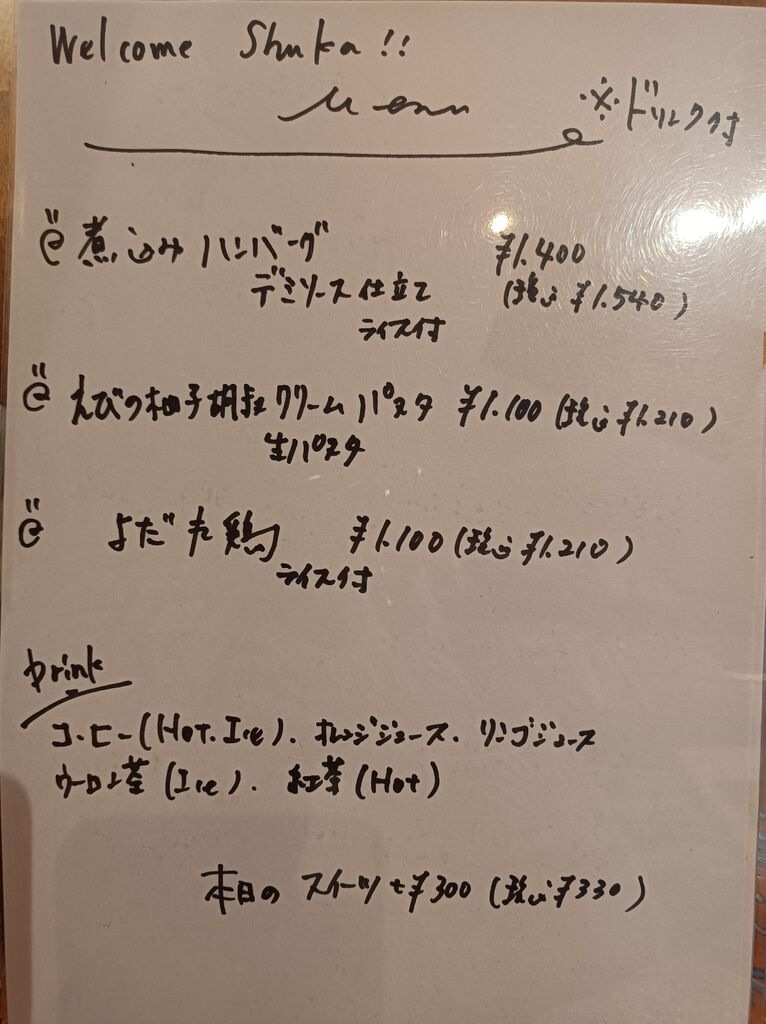 Welcome Shuka!!
Menu
※ドリンク付
煮込みハンバーグ ¥1.400
デミソース仕立て (税込¥1.540)
ライス付
えびの柚子胡椒クリームパスタ ¥1.100 (税込¥1.210)
生パスタ
よだれ鶏 ¥1.100 (税込¥1.210)
ライス付
Drink
コーヒー(Hot.Ice). オレンジジュース. リンゴジュース
ウーロン茶(Ice). 紅茶(Hot)
本日のスイーツ+¥300 (税込¥330)